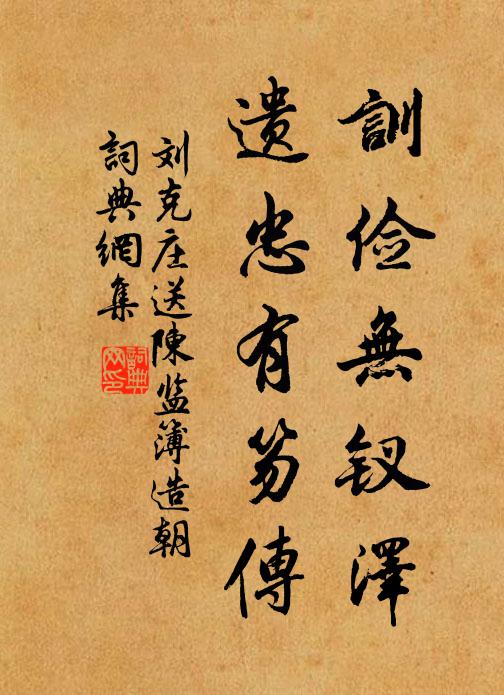 訓儉無釵澤
遺忠有笏傳
刘克庄送陳监簿造朝
詞典網集
詞典
网印